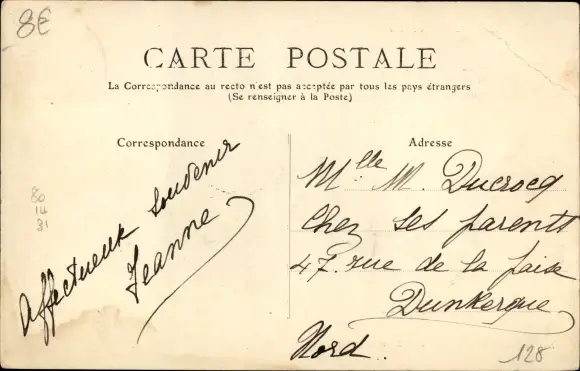 8€
CARTE POSTALE
La Correspondance au recto n'est pas acceptée par tous les pays étrangers
(Se renseigner à la Poste)
Correspondance
Adresse
Affectueux souvenir
Jeanne
80
14
81
Mlle M. Ducrocq
chez ses parents
47, rue de la paix
Dunkerque
Nord.
128